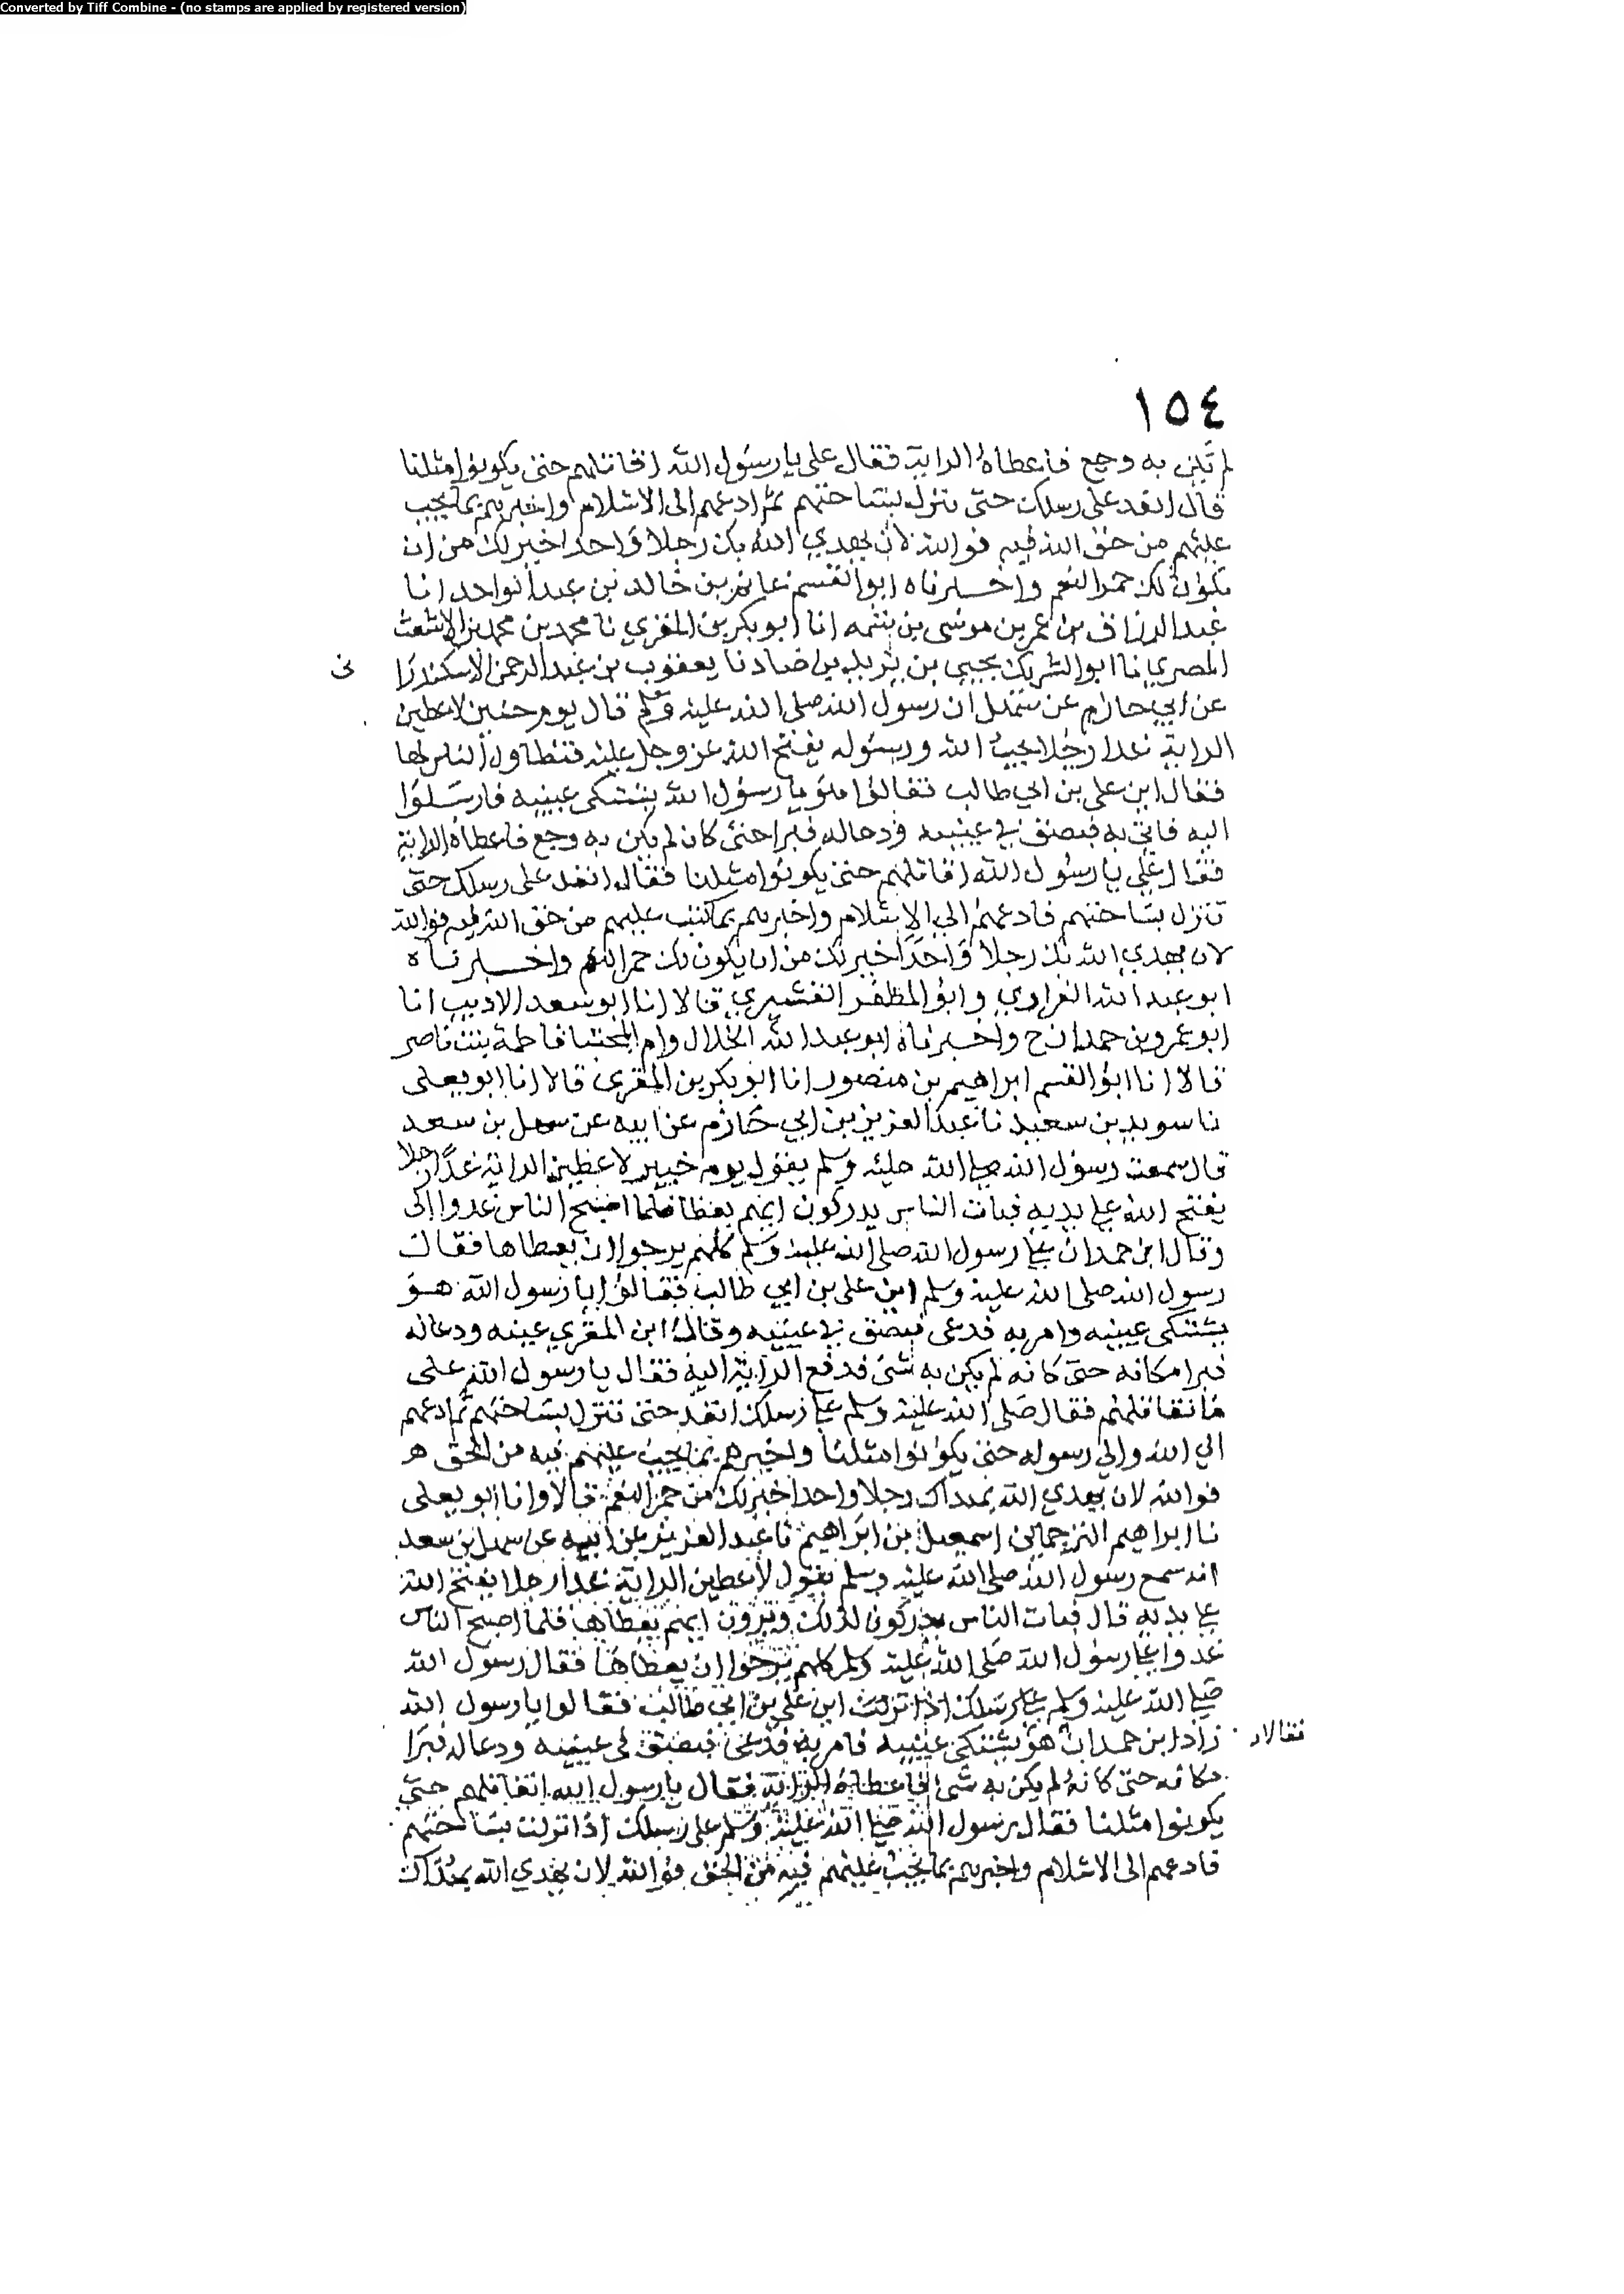 Converted by Tiff Combine - (no stamps are applied by registered version)
١٥٤
لم يكن به وجع فاعطاه الراية فقال على يا رسول الله اقاتلهم حتى يكونوا مثلنا
قال انفد على رسلك حتى تنزل بساحتهم ثم ادعهم الى الاسلام واخبرهم بما يجب
عليهم من حق الله فيه فوالله لان يهدي الله بك رجلا واحدا خير لك من ان
يكون لك حمر النعم واخبرناه ابو القسم عانم بن خالد بن عبد الواحد انا
عبد الرزاق بن عمر بن موسى بن شمه انا ابو بكر بن المقري نا محمد بن محمد بن الاشعث
المصري نا ابو الشريك يحيى بن يزيد بن ضماد نا يعقوب بن عبد الرحمن الاسكندرا
نى
عن ابي حازم عن سهل ان رسول الله صلى الله عليه وسلم قال يوم حنين لاعطين
الراية غدا رجلا يحب الله ورسوله يفتح الله عز وجل عليه فتطاول الناس لها
فقال اين على بن ابي طالب فقالوا هو يا رسول الله يشتكى عينيه فارسلوا
اليه فاتي به فبصق في عينيه ودعا له فبرا حتى كان لم يكن به وجع فاعطاه الراية
فقال علي يا رسول الله اقاتلهم حتى يكونوا مثلنا فقال انفد على رسلك حتى
تنزل بساحتهم فادعهم الي الاسلام واخبرهم بما يجب عليهم من حق الله فيه فوالله
لان يهدي الله بك رجلا واحدا خير لك من ان يكون لك حمر النعم واخبرناه
ابو عبد الله الفراوي وابو المظفر القشيري قالا انا ابو سعد الاديب انا
ابو عمرو بن حمدان ح واخبرناه ابو عبد الله الخلال وام المجتبا فاطمة بنت ناصر
قالا انا ابو القسم ابراهيم بن منصور انا ابو بكر بن المقرى قالا انا ابو يعلى
نا سويد بن سعيد نا عبد العزيز بن ابي حازم عن ابيه عن سهل بن سعد
قال سمعت رسول الله صلى الله عليه وسلم يقول يوم خيبر لاعطين الراية غدا رجلا
يفتح الله على يديه فبات الناس يدركون ايهم يعطا فلما اصبح الناس غدوا الى
وقال ابن حمدان على رسول الله صلى الله عليه وسلم كلهم يرجوا ان يعطاها فقال
رسول الله صلى الله عليه وسلم اين على بن ابي طالب فقالوا يا رسول الله هو
يشتكى عينيه وامر به فدعى فبصق في عينيه وقال ابن المقري عينه ودعا له
فبرا مكانه حتى كانه لم يكن به شى فدفع الراية اليه فقال يا رسول الله على
ما نقاتلهم فقال صلى الله عليه وسلم على رسلك انفد حتى تنزل بساحتهم ثم ادعهم
الي الله والي رسوله حتى يكونوا مثلنا واخبرهم بما يجب عليهم فيه من الحق ه
فوالله لان يهدي الله بهداك رجلا واحدا خير لك من حمر النعم قالا وانا ابو يعلى
نا ابراهيم الترجماني اسمعيل بن ابراهيم نا عبد العزيز عن ابيه عن سهل بن سعد
انه سمع رسول الله صلى الله عليه وسلم يقول لاعطين الراية غدا رجلا يفتح الله
على يديه قال فبات الناس يدركون لذلك ويرون ايهم يعطاها فلما اصبح الناس
غدوا على رسول الله صلى الله عليه وسلم كلهم يرجوا ان يعطاها فقال رسول الله
صلى الله عليه وسلم على رسلك اذا نزلت اين على بن ابي طالب فقالوا يا رسول الله
فقالا
زاد ابن حمدان هو يشتكى عينيه فامر به فدعى فبصق في عينيه ودعا له فبرا
مكانه حتى كانه لم يكن به شى فاعطاه الراية فقال يا رسول الله انقاتلهم حتى
يكونوا مثلنا فقال رسول الله صلى الله عليه وسلم على رسلك اذا نزلت بساحتهم
فادعهم الى الاسلام واخبرهم بما يجب عليهم فيه من الحق فوالله لان يهدي الله بهداك